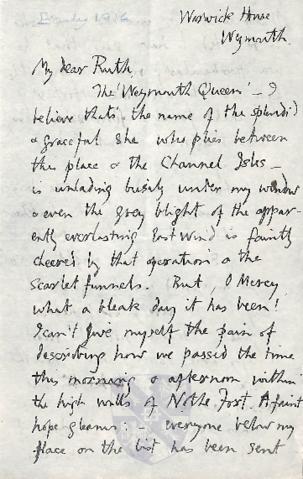 1916
Warwick House
Weymouth.
My dear Ruth,
The 'Weymouth Queen' – I
believe that's the name of the splendid
& graceful she who plies between
this place & the Channel Isles –
is unlading busily under my window
& even the grey blight of the appar-
ently everlasting East wind is faintly
cheered by that operation & the
scarlet funnels. But, O Mercy
what a bleak day it has been!
I can't give myself the pain of
describing how we passed the time
this morning & afternoon within
the high walls of Nothe Fort. A faint
hope gleams: – everyone below my
place on the list has been sent